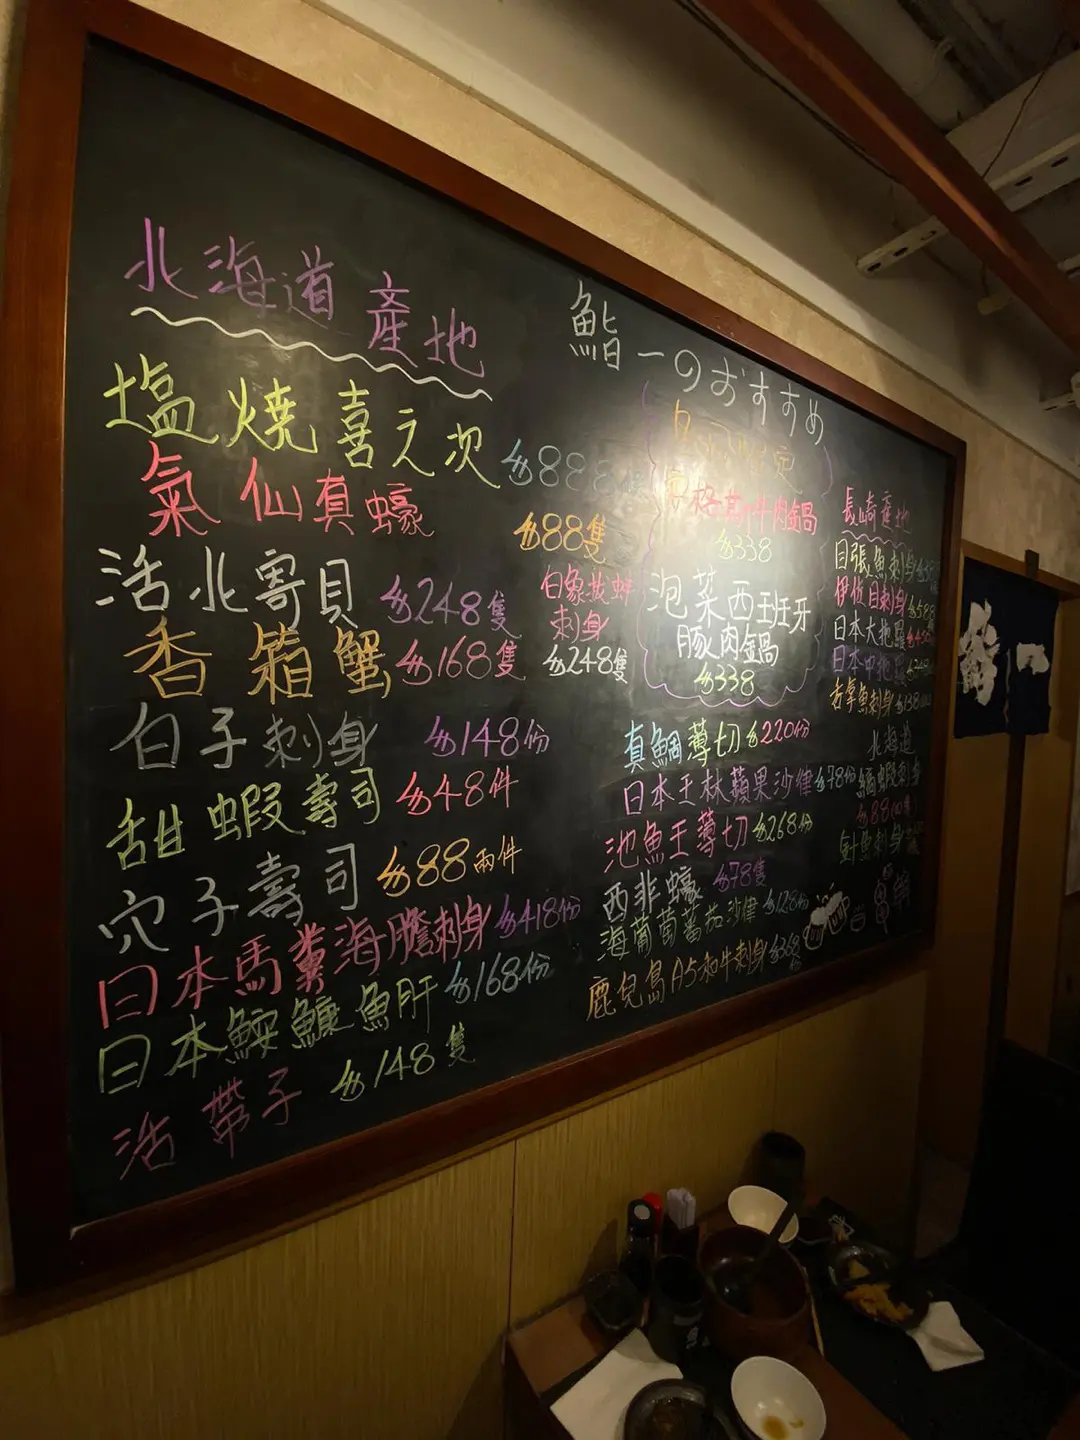 北海道 產地
塩燒喜之次 $888條
氣仙真蠔 $88隻
活北寄貝 $248隻
香箱蟹 $168隻
白子刺身 $148份
甜蝦壽司 $48件
穴子壽司 $88兩件
日本馬糞海膽刺身 $418份
日本鮟鱇魚肝 $168份
活帶子 $148隻
白象拔蚌
刺身
$248隻
鮨一のおすすめ
牛肉鍋
$338
泡菜西班牙
豚肉鍋
$338
真鯛薄切 $220份
日本王林蘋果沙律 $78份
池魚王薄切 $268份
西非蠔 $78隻
海葡萄蕃茄沙律 $128份
鹿兒島A5和牛刺身 $268
長崎產地
目張魚刺身
伊佐目刺身 $58
日本大池
日本中池
魚刺身 $138
北海道
縞蝦刺身
$88
針魚刺身
鮨一